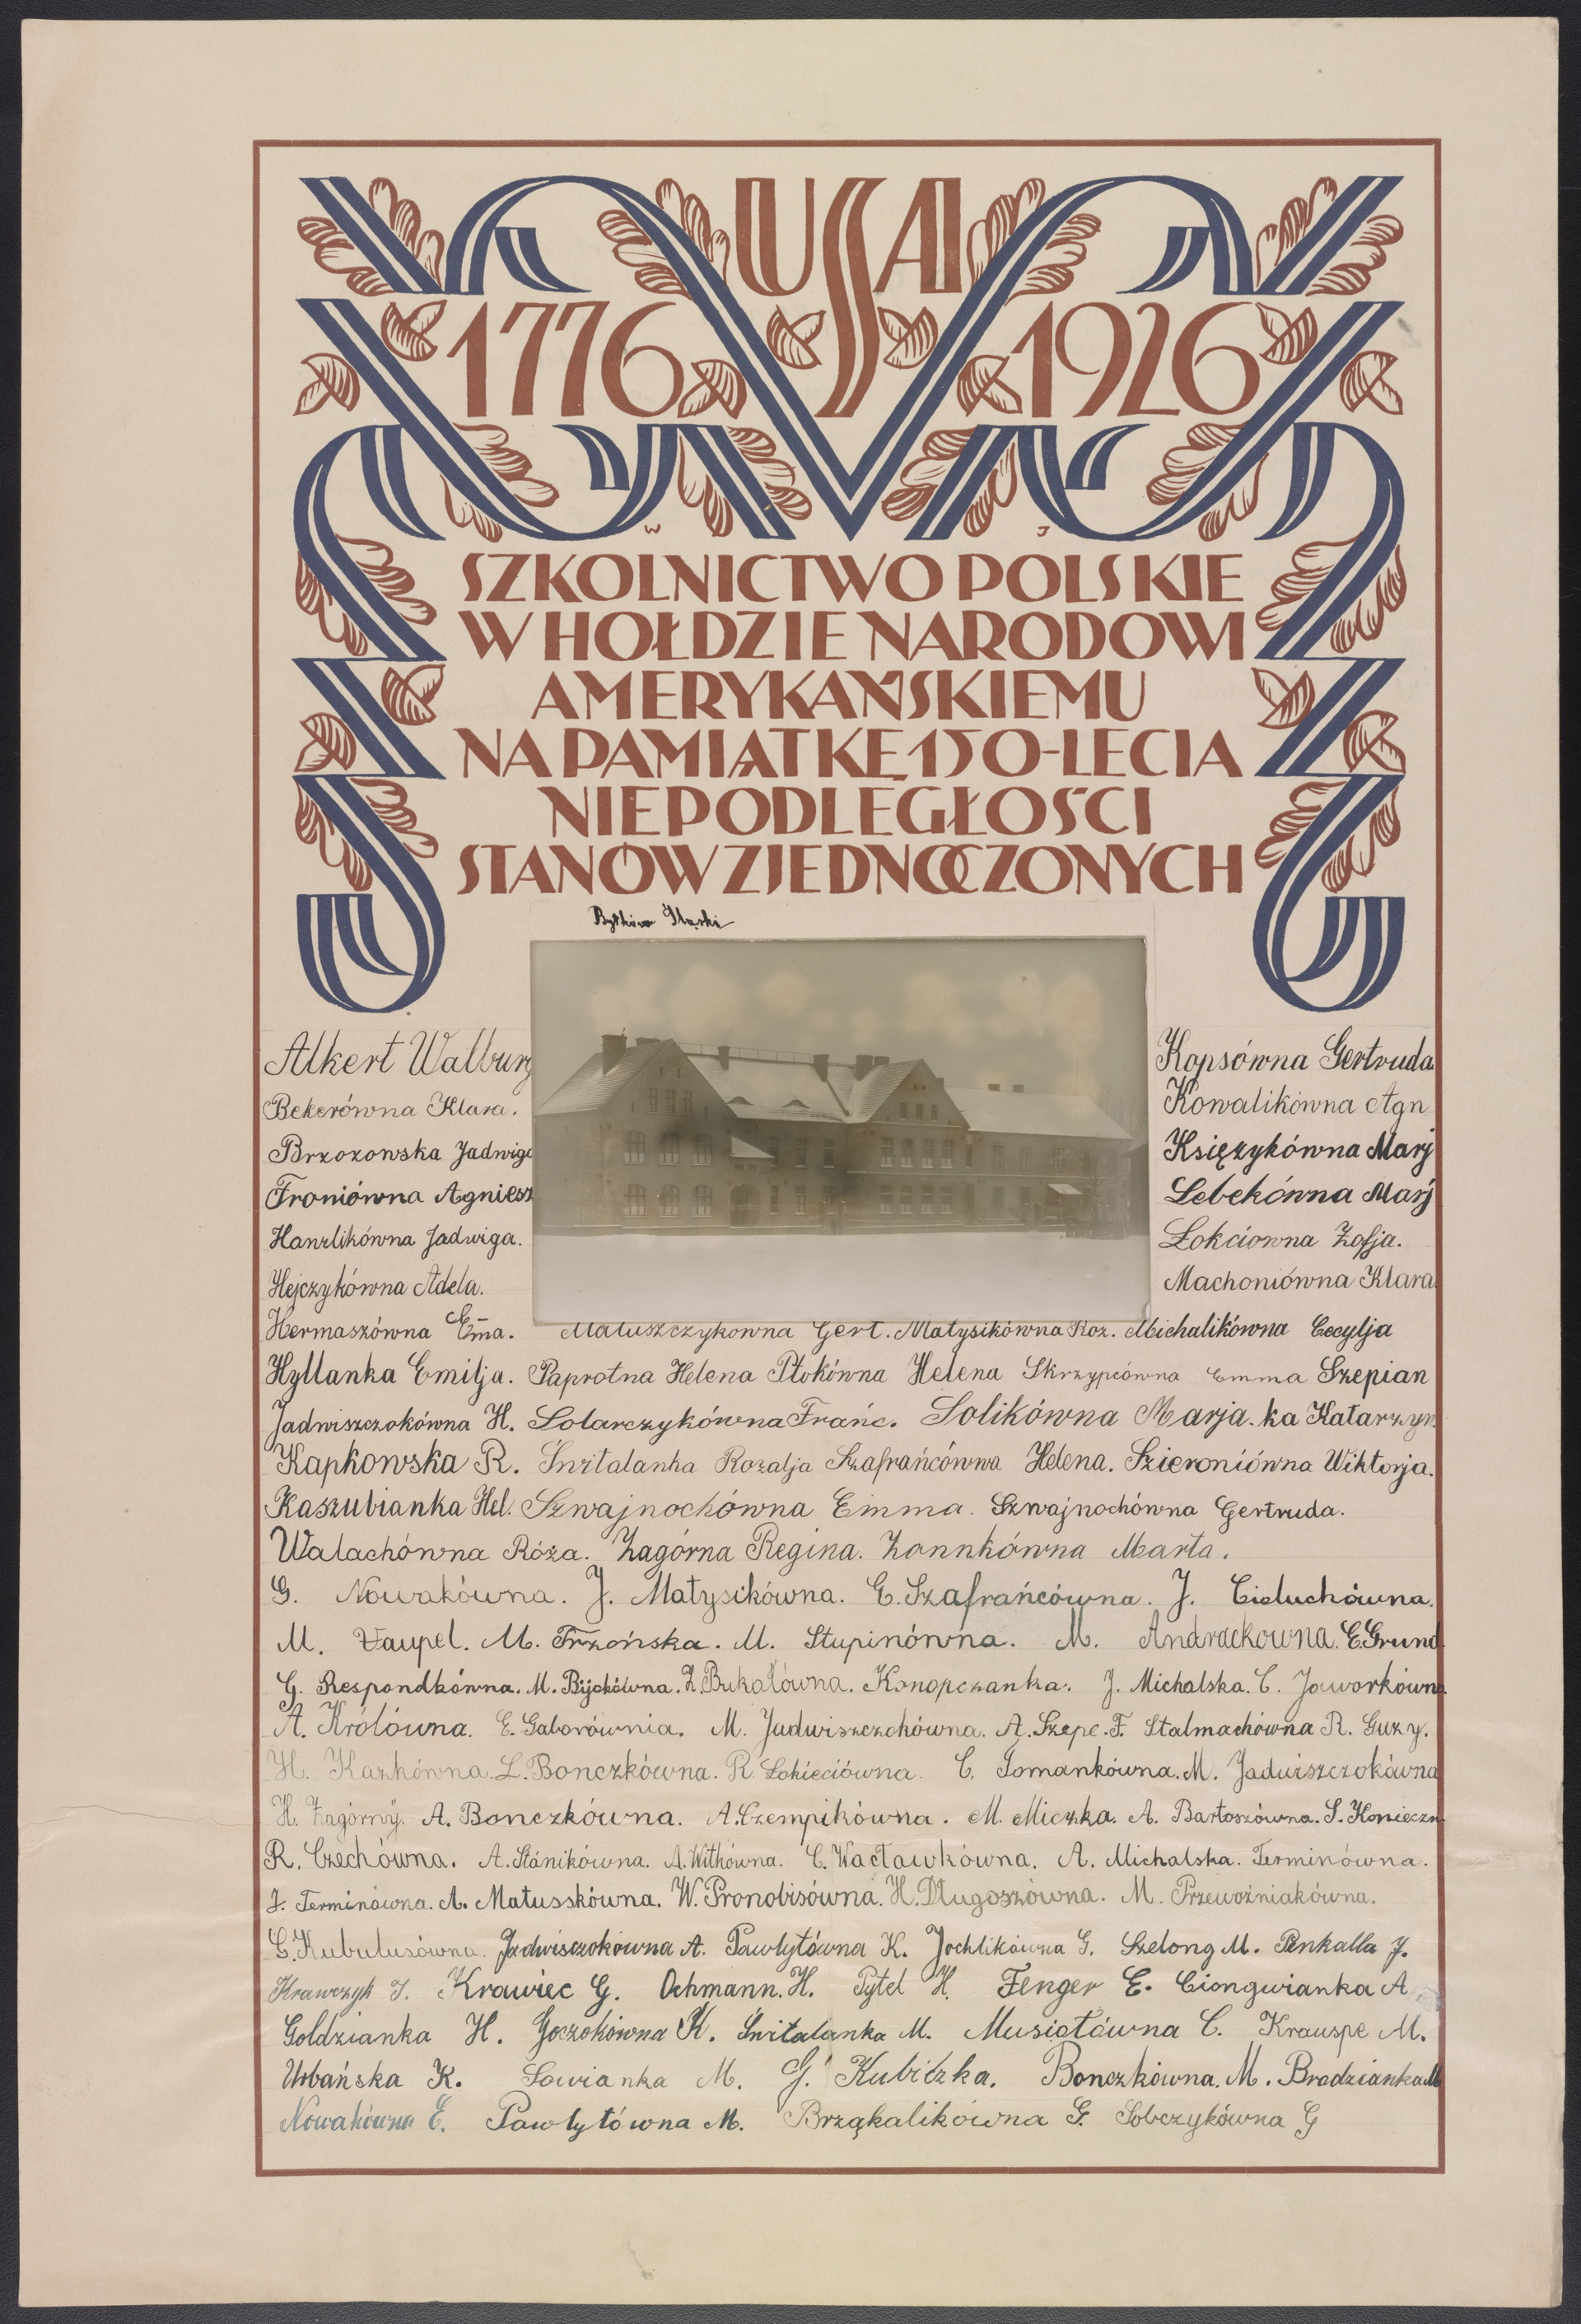 USA
1776 1926
W J
SZKOLNICTWO POLSKIE
W HOŁDZIE NARODOWI
AMERYKAŃSKIEMU
NA PAMIĄTKĘ 150-LECIA
NIEPODLEGŁOŚCI
STANÓW ZJEDNOCZONYCH
Bytków Śląski
Alkert Walburg
Bekerówna Klara.
Brzozowska Jadwiga
Froniówna Agniesz
Hanzlikówna Jadwiga.
Hejczykówna Adela.
Kopsówna Gertruda
Kowalikówna Agn
Księżykówna Marj
Lebekówna Marj
Lokciowna Zofja.
Machoniówna Klara
Hermaszówna Em̄a. Matuszczykówna Gert. Matysikówna Roz. Michalikówna Cecylja
Hyllanka Emilja. Paprotna Helena Ptokówna Helena Skrzypcówna Emma Szepian
Jadwiszczokówna H. Solarczykówna Frańc. Solikówna Marja. ka Katarzyn
Kapkowska R. Śnitalanka Rozalja Szafrańcówna Helena. Szieroniówna Wiktorja.
Kaszubianka Hel. Szwajnochówna Emma. Szwajnochówna Gertruda.
Walachówna Róża. Zagórna Regina. Zonnkówna Marta.
G. Nowakówna. J. Matysikówna. E. Szafrańcówna. J. Cieluchówna.
M. Vaupel. M. Trzońska. M. Stupinówna. M. Andrackowna. E. Grund
G. Respondkówna. M. Bijokówna. Z. Bukałówna. Konopczanka. J. Michalska. C. Jaworkówna
A. Królówna. E. Gaborównia. M. Jadwiszczokówna. A. Szepe. F. Stalmachówna R. Guzy.
H. Kazkówna. L. Bonczkówna. R. Łokieciówna. C. Tomankówna. M. Jadwiszczokówna
H. Zagórny. A. Bonczkówna. A. Czempikówna. M. Miczka. A. Bartoszówna. S. Konieczn
R. Czechówna. A. Stánikówna. A. Witkówna. C. Wacławkówna. A. Michalska. Terminówna.
J. Terminówna. A. Matusskówna. W. Pronobisówna. H. Długoszówna. M. Przewoźniakówna.
C. Kubulusówna. Jadwisczokówna A. Pawlytówna K. Jochlikówna G. Szelong M. Penkalla J.
Krawczyk J. Krawiec G. Ochmann. H. Pytel H. Fenger E. Ciongwianka A
Goldzianka H. Goczokówna K. Śnitalanka M. Musiałówna C. Krauspe M.
Urbańska K. Sowianka M. G. Kubiczka. Bonczkówna. M. Bradzianka M
Nowakówna E. Pawlytówna M. Brząkalikówna G. Sobczykówna G